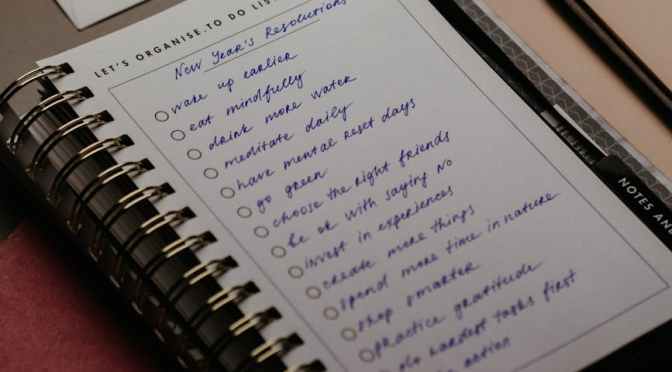 LET'S ORGANISE.TO DO LIS
New Year's Resolutions
wake up earlier
eat mindfully
drink more water
meditate daily
have mental reset days
go green
choose the right friends
be ok with saying no
invest in experiences
create more things
spend more time in nature
shop smarter
practice gratitude
do hardest tasks first
action
NOTES AN